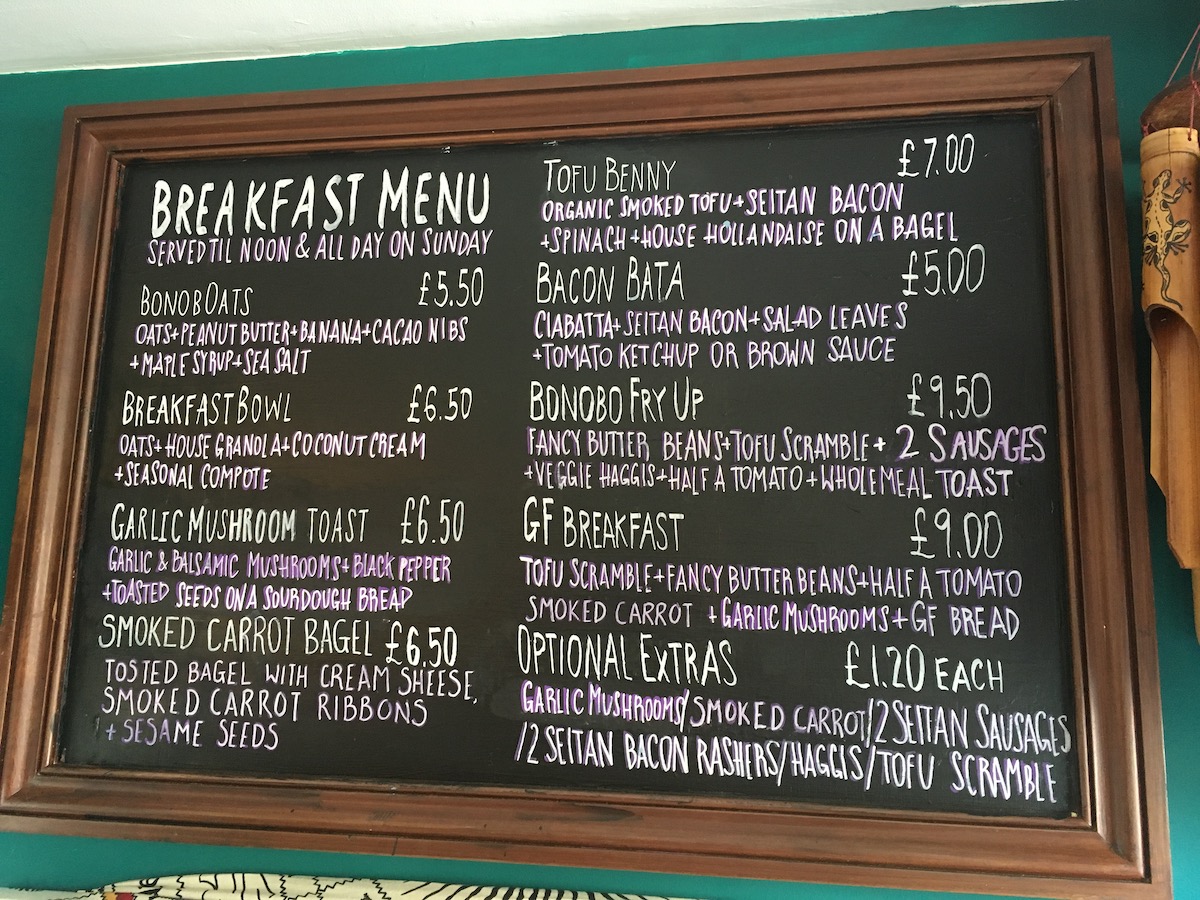 BREAKFAST MENU
SERVED TIL NOON & ALL DAY ON SUNDAY
BONOBOATS £5.50
OATS+PEANUT BUTTER+BANANA+CACAO NIBS
+MAPLE SYRUP+SEA SALT
BREAKFAST BOWL £6.50
OATS+HOUSE GRANOLA+COCONUT CREAM
+SEASONAL COMPOTE
GARLIC MUSHROOM TOAST £6.50
GARLIC & BALSAMIC MUSHROOMS+BLACK PEPPER
+TOASTED SEEDS ON A SOURDOUGH BREAD
SMOKED CARROT BAGEL £6.50
TOSTED BAGEL WITH CREAM SHEESE,
SMOKED CARROT RIBBONS
+SESAME SEEDS
TOFU BENNY £7.00
ORGANIC SMOKED TOFU+SEITAN BACON
+SPINACH+HOUSE HOLLANDAISE ON A BAGEL
BACON BATA £5.00
CIABATTA+SEITAN BACON+SALAD LEAVES
+TOMATO KETCHUP OR BROWN SAUCE
BONOBO FRY UP £9.50
FANCY BUTTER BEANS+TOFU SCRAMBLE+ 2 SAUSAGES
+VEGGIE HAGGIS+HALF A TOMATO+WHOLEMEAL TOAST
GF BREAKFAST £9.00
TOFU SCRAMBLE+FANCY BUTTER BEANS+HALF A TOMATO
SMOKED CARROT +GARLIC MUSHROOMS+GF BREAD
OPTIONAL EXTRAS £1.20 EACH
GARLIC MUSHROOMS/SMOKED CARROT/2 SEITAN SAUSAGES
/2 SEITAN BACON RASHERS/HAGGIS/TOFU SCRAMBLE